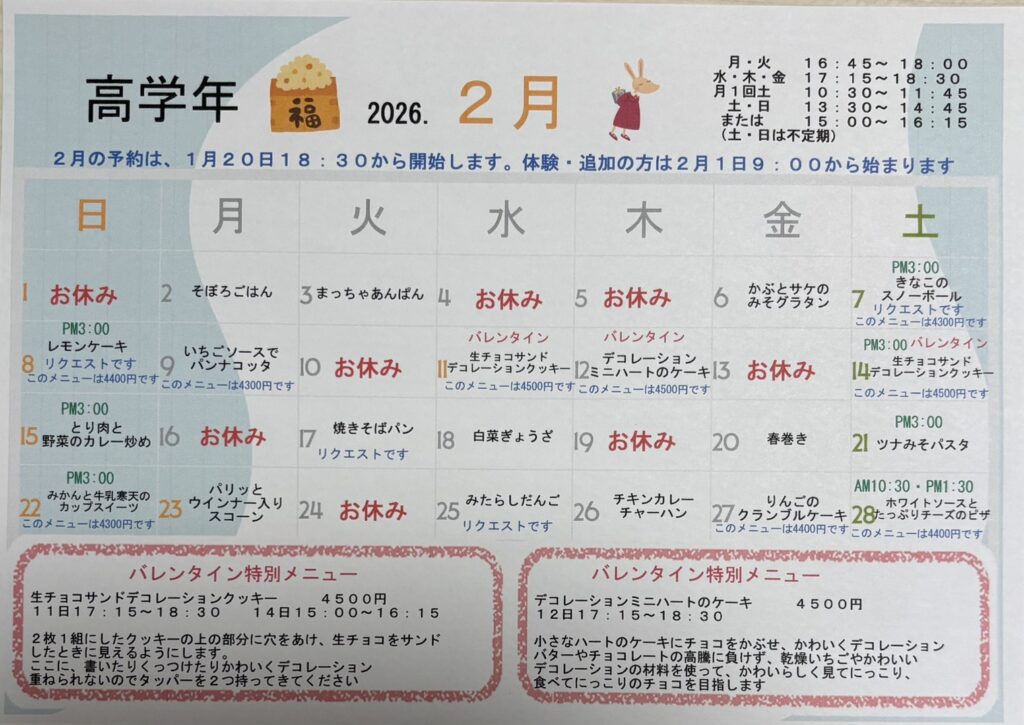 高学年
福
2026.
2月
月・火 16：45～18：00
水・木・金 17：15～18：30
月1回土 10：30～11：45
土・日 13：30～14：45
または 15：00～16：15
(土・日は不定期)
2月の予約は、1月20日18：30から開始します。体験・追加の方は2月1日9：00から始まります
日 月 火 水 木 金 土
1 お休み
2 そぼろごはん
3 まっちゃあんぱん
4 お休み
5 お休み
6 かぶとサケの
みそグラタン
PM3:00
7 きなこの
スノーボール
リクエストです
このメニューは4300円です
PM3:00
8 レモンケーキ
リクエストです
このメニューは4400円です
9 いちごソースで
パンナコッタ
このメニューは4300円です
10 お休み
バレンタイン
11 生チョコサンド
デコレーションクッキー
このメニューは4500円です
バレンタイン
12 デコレーション
ミニハートのケーキ
このメニューは4500円です
13 お休み
PM3:00 バレンタイン
14 生チョコサンド
デコレーションクッキー
このメニューは4500円です
PM3:00
15 とり肉と
野菜のカレー炒め
16 お休み
17 焼きそばパン
リクエストです
18 白菜ぎょうざ
19 お休み
20 春巻き
PM3:00
21 ツナみそパスタ
PM3:00
22 みかんと牛乳寒天の
カップスイーツ
このメニューは4300円です
23 パリッと
ウインナー入り
スコーン
24 お休み
25 みたらしだんご
リクエストです
26 チキンカレー
チャーハン
27 りんごの
クランブルケーキ
このメニューは4400円です
AM10:30・PM1:30
28 ホワイトソースと
たっぷりチーズのピザ
このメニューは4400円です
バレンタイン特別メニュー
生チョコサンドデコレーションクッキー 4500円
11日17：15～18：30 14日15：00～16：15
2枚1組にしたクッキーの上の部分に穴をあけ、生チョコをサンド
したときに見えるようにします。
ここに、書いたりくっつけたりかわいくデコレーション
重ねられないのでタッパーを2つ持ってきてください
バレンタイン特別メニュー
デコレーションミニハートのケーキ 4500円
12日17：15～18：30
小さなハートのケーキにチョコをかぶせ、かわいくデコレーション
バターやチョコレートの高騰に負けず、乾燥いちごやかわいい
デコレーションの材料を使って、かわいらしく見てにっこり、
食べてにっこりのチョコを目指します